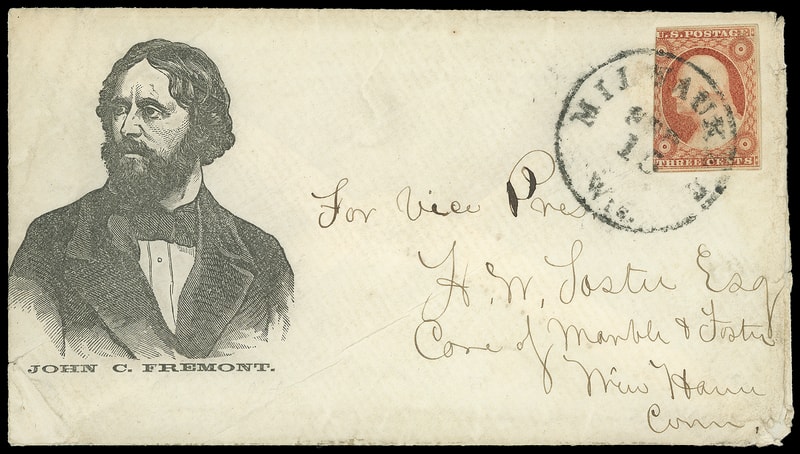 U.S. POSTAGE
THREE CENTS
MILWAUKEE
SEP
15
WIS.
For Vice Pres
H. W. Foster Esq
Care of Marble & Foster
New Haven
Conn.
JOHN C. FREMONT.